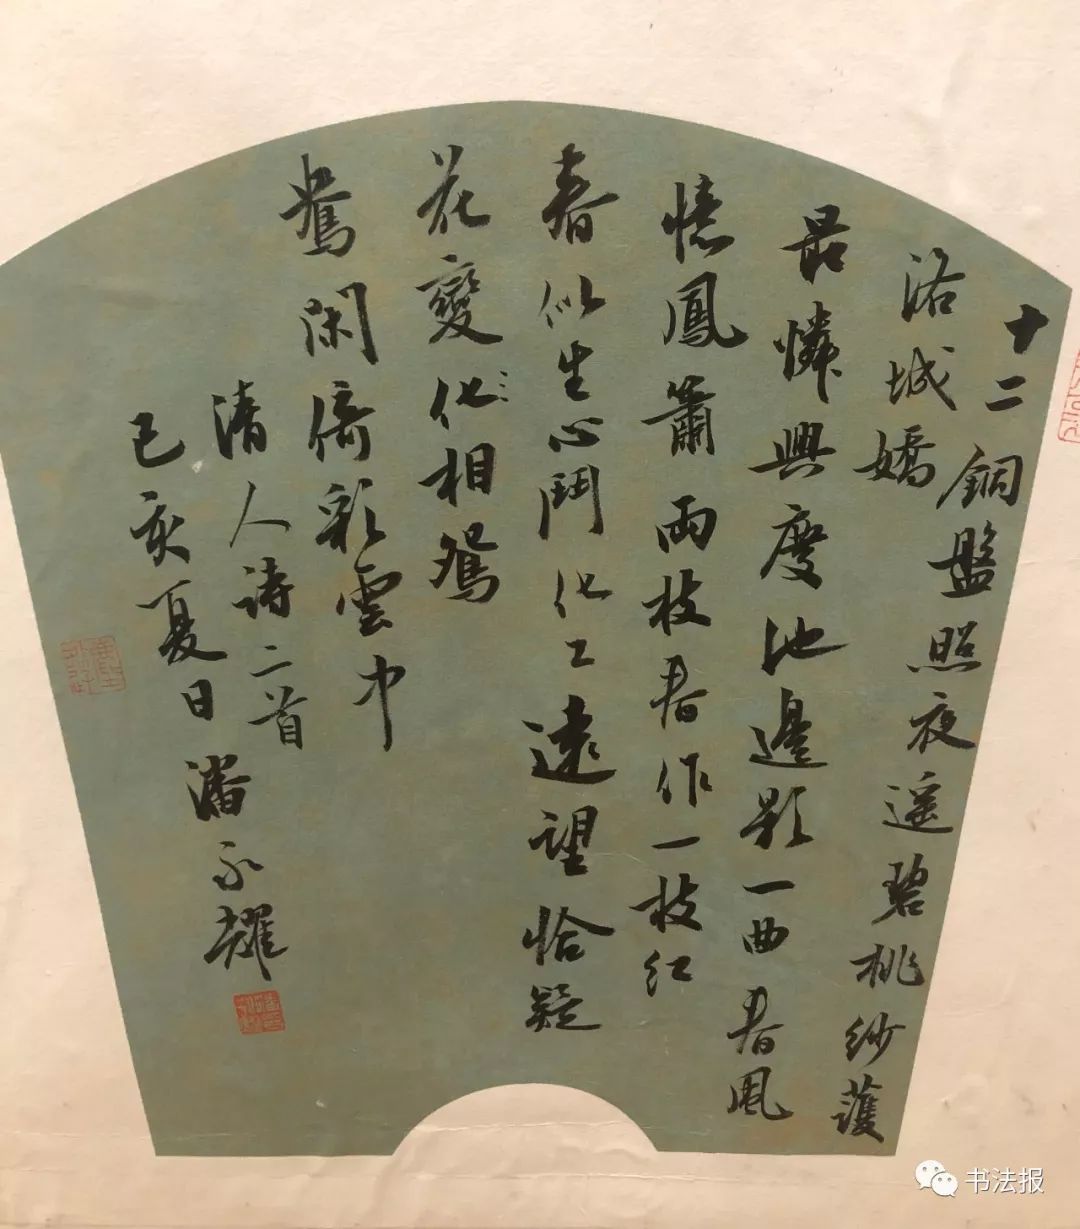 十二銅盤照夜遥碧桃紗護
洛城嬌
最憐興慶池邊影一曲春風
憶鳳簫兩枝春作一枝紅
春似生心鬥化工遠望恰疑
花變化相鴛
鴦閑倚彩雲中
清人詩二首
己亥夏日潘永耀
书法报